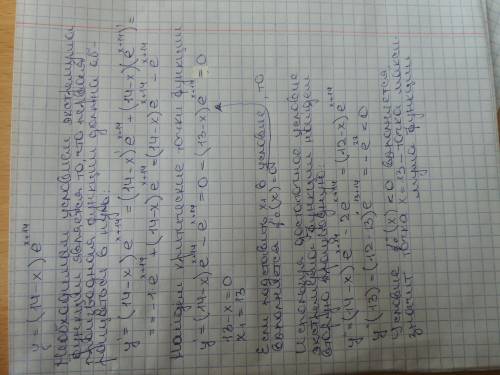 y = (14-x) e^{x+14}
Необходимым условием экстремума
функции является то, что первая
производная функции должна об-
ращаться в нуль:
y' = (14-x)' e^{x+14} = (14-x)' e^{x+14} + (14-x)(e^{x+14})' =
= -1 e^{x+14} + (14-x) e^{x+14} = (14-x) e^{x+14} - e^{x+14}
Найдем критические точки функции
y' = (14-x) e^{x+14} - e^{x+14} = 0 - (13-x) e^{x+14} = 0
13-x=0
x₁=13
Если подставить x₁ в условие, то
выполняется
Используя достаточное условие
экстремума функции найдем
вторую производную:
y'' = (14-x) e^{x+14} - 2e^{x+14} = (12-x) e^{x+14}
y''(13) = (12-13) e^{13+14} = -e^{27} = 0
Условие (x) < 0 выполняется
значит точка x=13 - точка макси-
мума функции